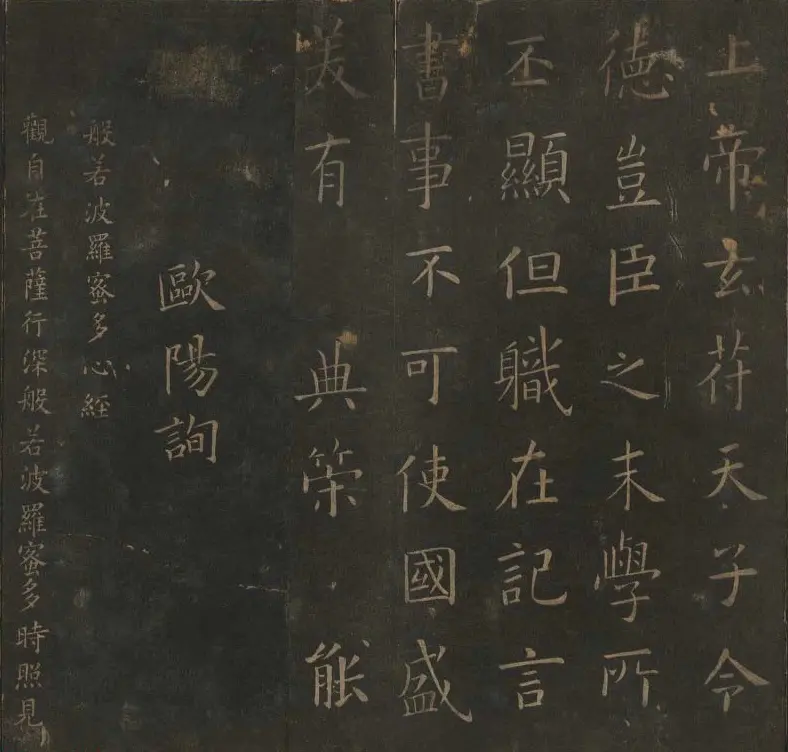 上帝玄符天子令
德豈臣之末學所
丕顯但職在記言
書事不可使國盛
美有 典策 能
歐陽詢
般若波羅蜜多心經
觀自在菩薩行深般若波羅蜜多時照見